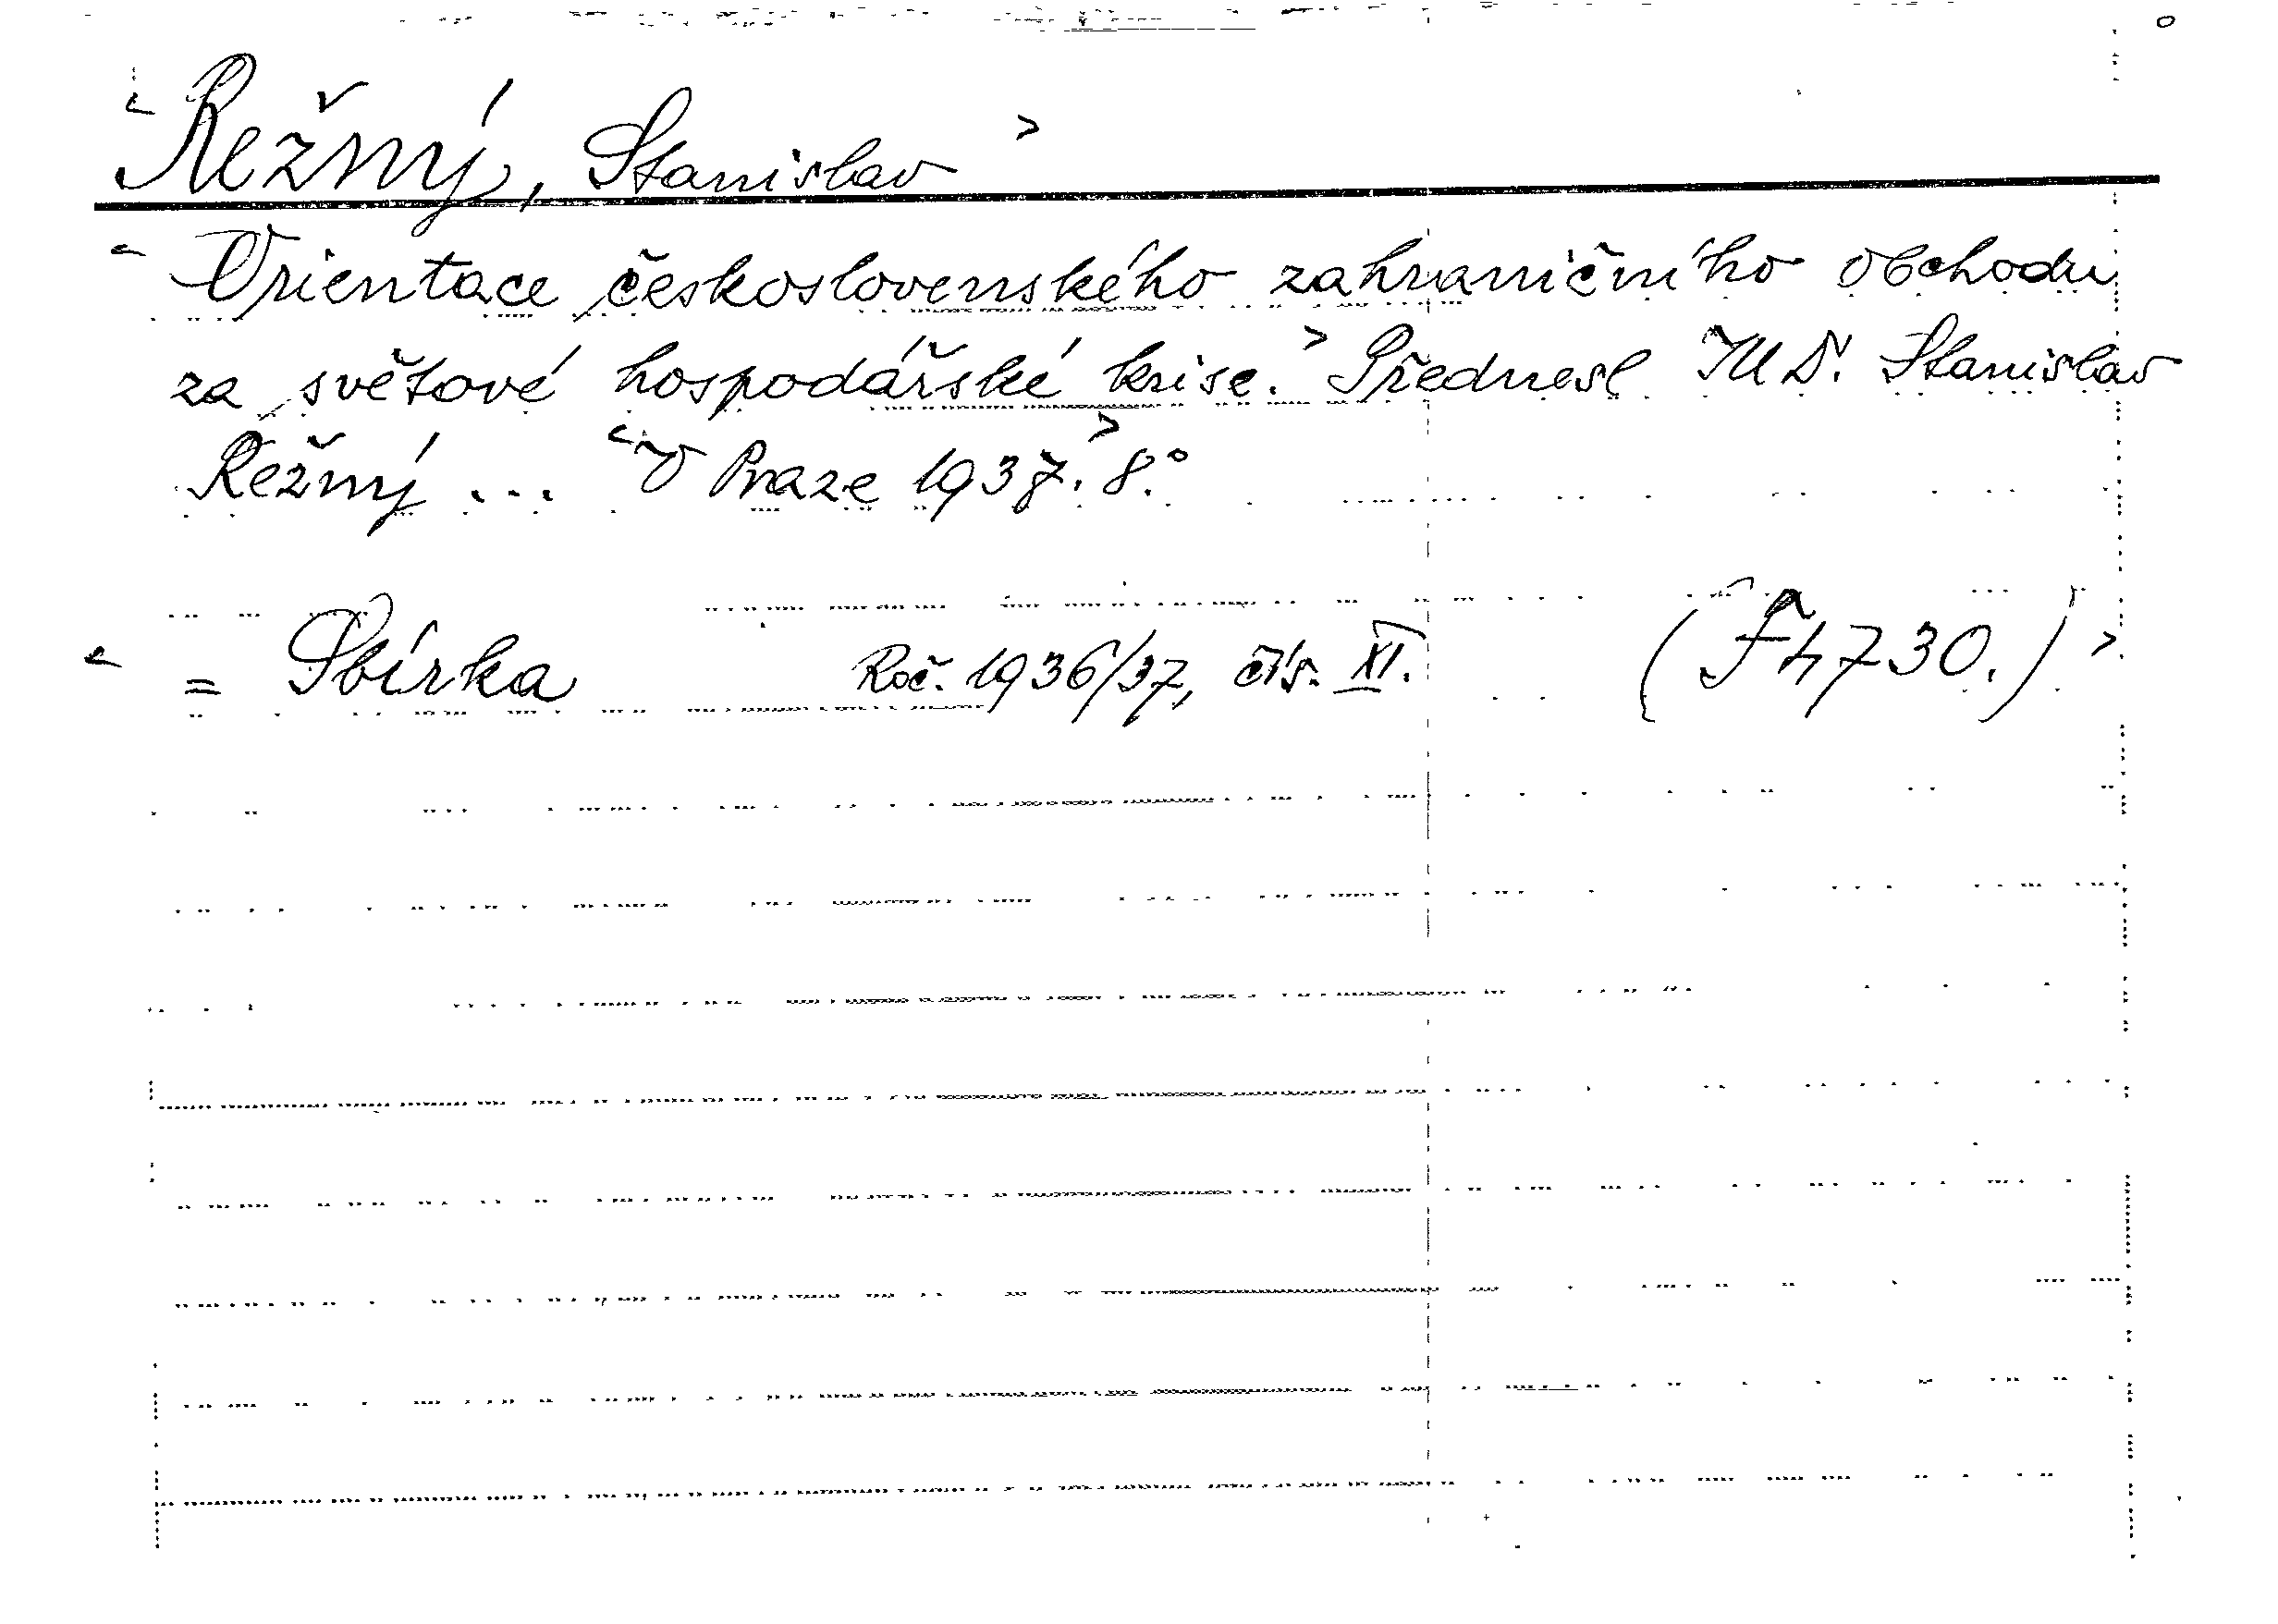 <Režný, Stanislav>
<Orientace československého zahraničního obchodu
za světové hospodářské krise.> Přednesl JUDr. Stanislav
Režný ... <V Praze 1937.> 8.°
< = Sbírka Roč. 1936/37, čís. XI. (F 4730.) >